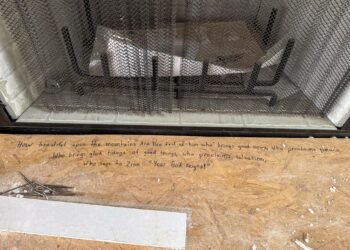 "How beautiful upon the mountains Are the feet of him who brings good news, Who proclaims peace,
Who brings glad tidings of good things, Who proclaims salvation,
Who says to Zion: "Your God Reigns!"